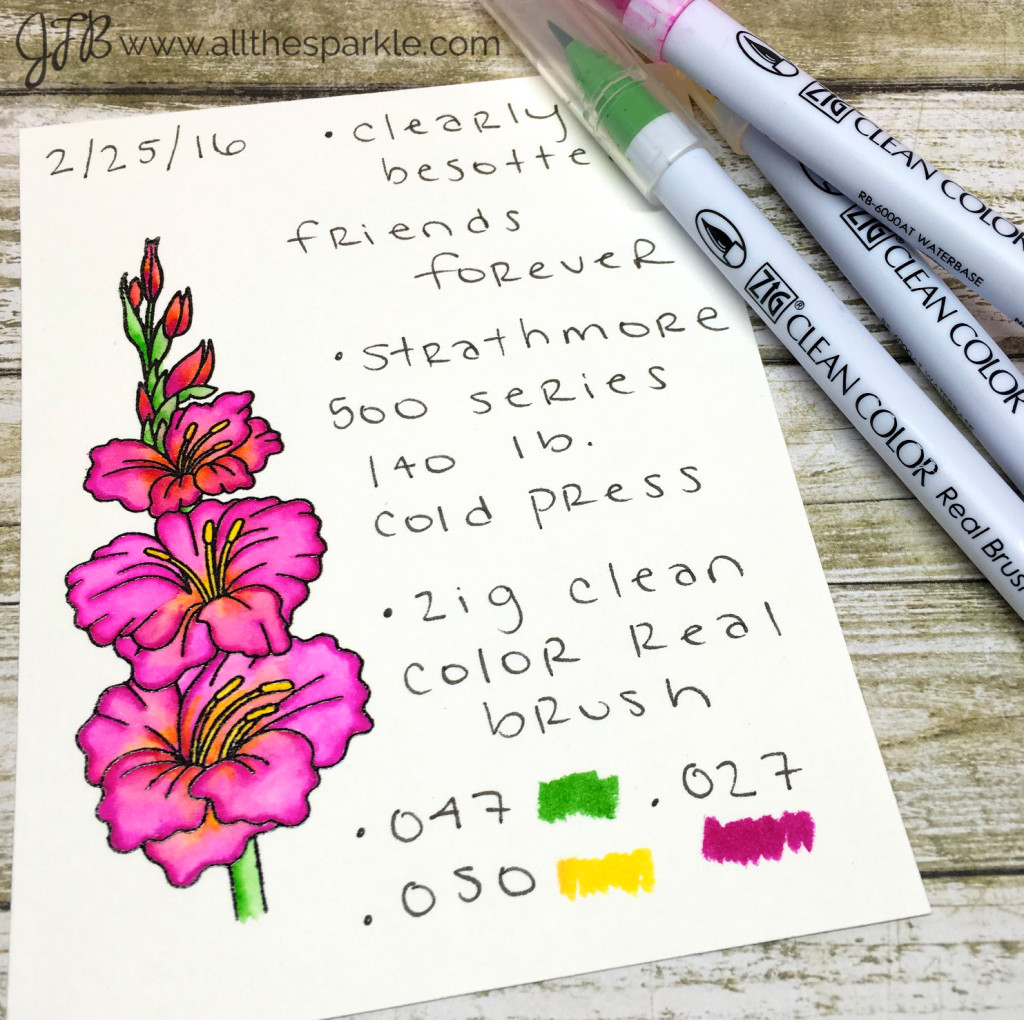 JFB www.allthesparkle.com
2/25/16
• clearly
besotte
friends
forever
• strathmore
500 series
140 lb.
cold press
• zig clean
color real
brush
• 047
• 027
• 050
ZIG® CLEAN COLOR Real Brush
ZIG CLEAN COLOR
ZIG CLEAN COLOR
RB-6000AT WATERBASE